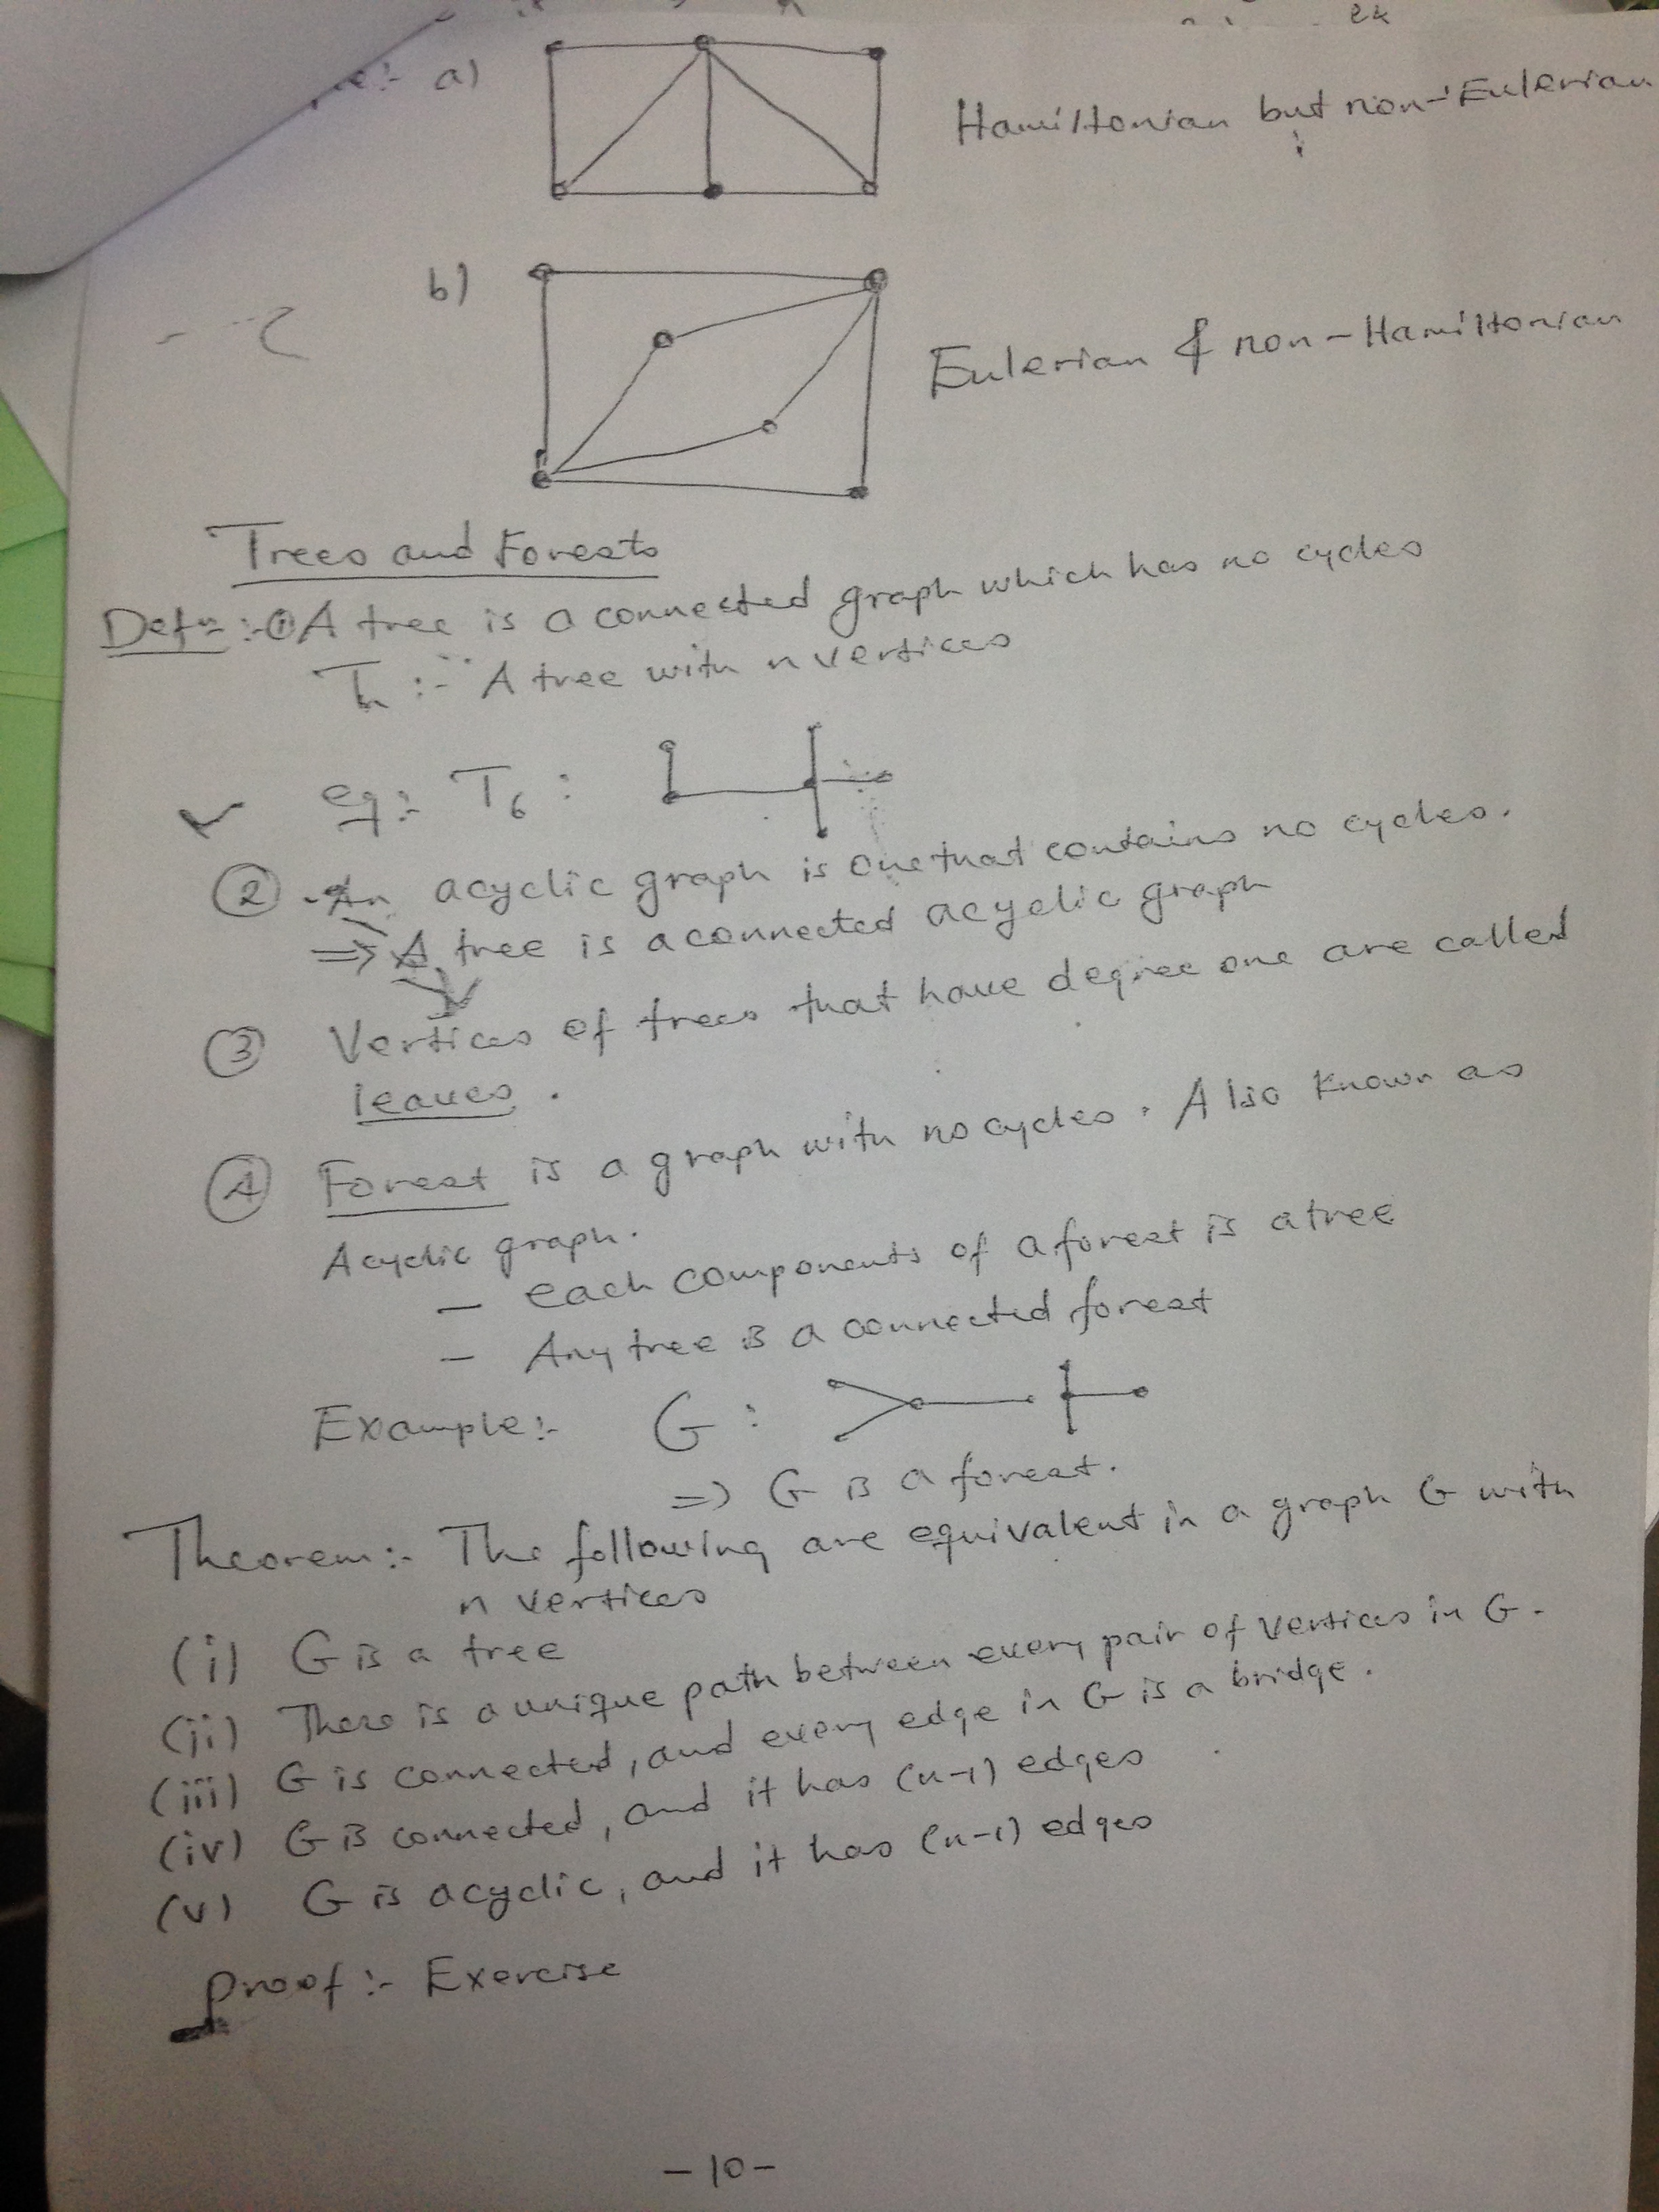 a)
Hamiltonian but non-Eulerian
b)
Eulerian & non-Hamiltonian
Trees and Forests
Defn :- ① A tree is a connected graph which has no cycles
Tn :- A tree with n vertices
eg:- T6 :
② An acyclic graph is one that contains no cycles.
=> A tree is a connected acyclic graph
③ Vertices of trees that have degree one are called
leaves.
④ Forest is a graph with no cycles. Also known as
Acyclic graph.
— each components of a forest is a tree
— Any tree is a connected forest
Example:- G :
=> G is a forest.
Theorem:- The following are equivalent in a graph G with
n vertices
(i) G is a tree
(ii) There is a unique path between every pair of vertices in G.
(iii) G is connected, and every edge in G is a bridge.
(iv) G is connected, and it has (n-1) edges
(v) G is acyclic, and it has (n-1) edges
Proof :- Exercise
-10-